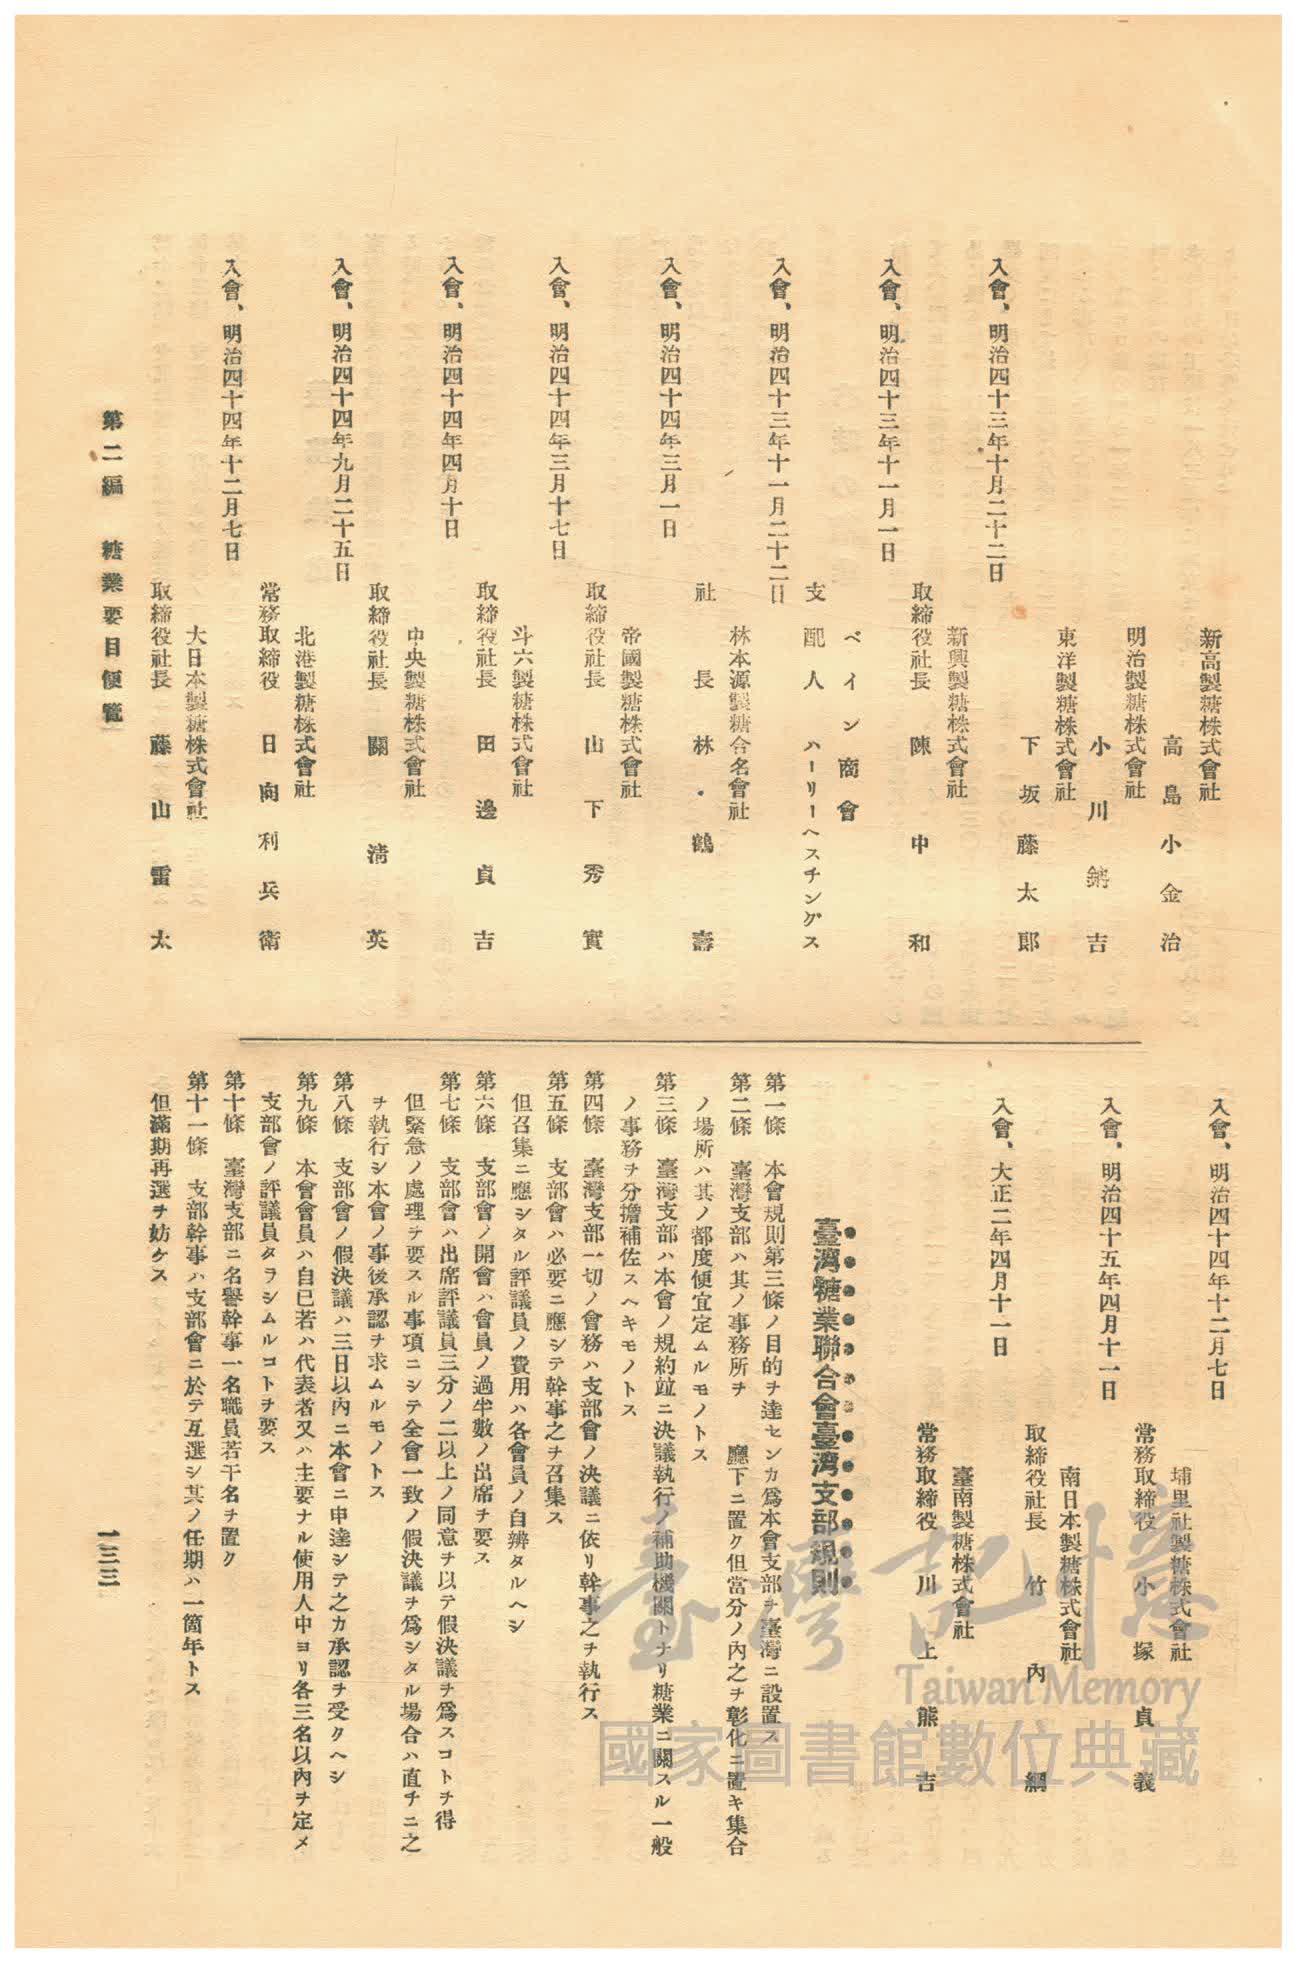 新高製糖株式會社
高島小金治
明治製糖株式會社
小川䤡吉
東洋製糖株式會社
下坂藤太郎
入會、明治四十三年十月二十二日
新興製糖株式會社
取締役社長 陳中和
入會、明治四十三年十一月一日
ベイン商會
支配人 ハーリーヘスチングス
入會、明治四十三年十一月二十二日
林本源製糖合名會社
社長 林・鶴壽
入會、明治四十四年三月一日
帝國製糖株式會社
取締役社長 山下秀實
入會、明治四十四年三月十七日
斗六製糖株式會社
取締役社長 田邊貞吉
入會、明治四十四年四月十日
中央製糖株式會社
取締役社長 關清英
入會、明治四十四年九月二十五日
北港製糖株式會社
常務取締役 日向利兵衛
入會、明治四十四年十二月七日
大日本製糖株式會社
取締役社長 藤山雷太
入會、明治四十四年十二月七日
埔里社製糖株式會社
常務取締役 小塚貞義
入會、明治四十五年四月十一日
南日本製糖株式會社
取締役社長 竹內綱
入會、大正二年四月十一日
臺南製糖株式會社
常務取締役 川上熊吉
臺灣糖業聯合會臺灣支部規則
第一條 本會規則第三條ノ目的ヲ達センカ爲本會支部ヲ臺灣ニ設置ス
第二條 臺灣支部ハ其ノ事務所ヲ 廳下ニ置ク但當分ノ內之ヲ彰化ニ置キ集合
ノ場所ハ其ノ都度便宜定ムルモノトス
第三條 臺灣支部ハ本會ノ規約竝ニ決議執行ノ補助機關トナリ糖業ニ關スル一般
ノ事務ヲ分擔補佐スヘキモノトス
第四條 臺灣支部一切ノ會務ハ支部會ノ決議ニ依リ幹事之ヲ執行ス
第五條 支部會ハ必要ニ應シテ幹事之ヲ召集ス
但召集ニ應シタル評議員ノ費用ハ各會員ノ自辨タルヘシ
第六條 支部會ノ開會ハ會員ノ過半數ノ出席ヲ要ス
第七條 支部會ハ出席評議員三分ノ二以上ノ同意ヲ以テ假決議ヲ爲スコトヲ得
但緊急ノ處理ヲ要スル事項ニシテ全會一致ノ假決議ヲ爲シタル場合ハ直チニ之
ヲ執行シ本會ノ事後承認ヲ求ムルモノトス
第八條 支部會ノ假決議ハ三日以內ニ本會ニ申達シテ之カ承認ヲ受クヘシ
第九條 本會會員ハ自己若ハ代表者又ハ主要ナル使用人中ヨリ各三名以內ヲ定メ
支部會ノ評議員タラシムルコトヲ要ス
第十條 臺灣支部ニ名譽幹事一名職員若干名ヲ置ク
第十一條 支部幹事ハ支部會ニ於テ互選シ其ノ任期ハ一箇年トス
但滿期再選ヲ妨ケス
第二編 糖業要目便覽
一三三
臺灣記憶
Taiwan Memory
國家圖書館數位典藏